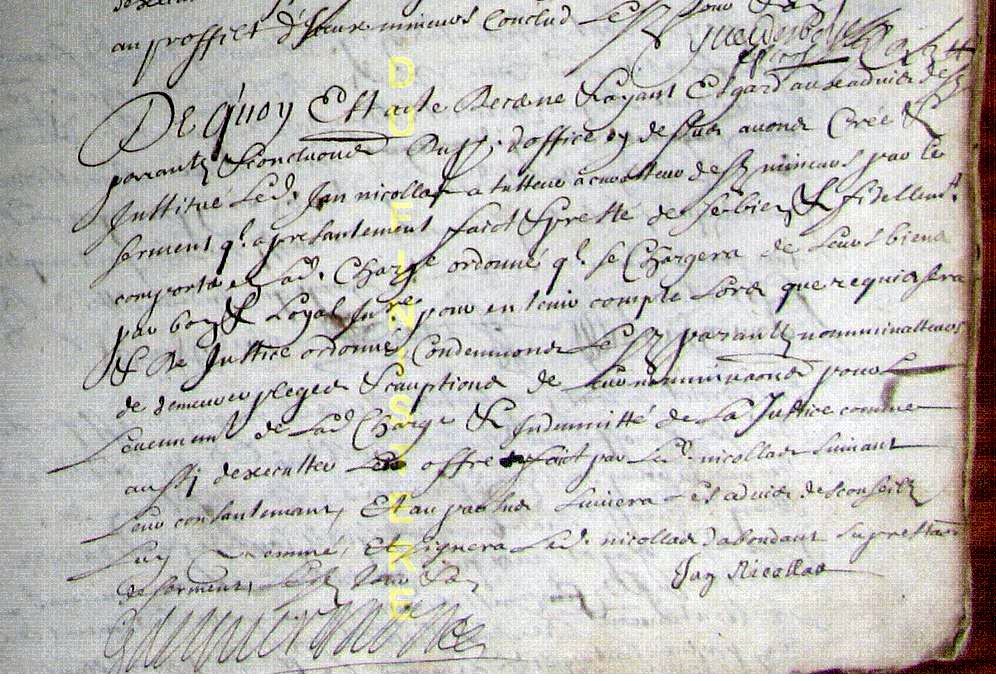 au proffict d'iceux mineurs Conclud Lesd. Jour & an
De quoy Est acte Decerné & ayant Esgard aux advis des
parantz & conclusions d'office & de plus avons Créé &
Institué Led. Jan nicollas tutteur & curatteur desd. mineurs par le
serment q'l a presantement faict & presté de se bien & fidellemt.
comporter en Lad. Charge ordonné q'l se Chargera de Leurs biens
par bon & Loyal Inre. pour en tenir compte Lors que requis sera
& de Justice ordonné Condemnons Lesd. parantz nomminatteurs
de demeurer pleges & cauptions de Leur nomminaon pour
L'evenement de Lad. Charge & Indemnitté de La Justice comme
aussy d'executter Les offres faict par Led. nicollas suivant
Leur consantemant, Et au parsus suivra Les advis des conseils
Luy nommé, Et signera Led. nicollas d'abondant sa prestaon
de serment, Lesd. Jour & an
Jan Nicollas
DUFINISTERE